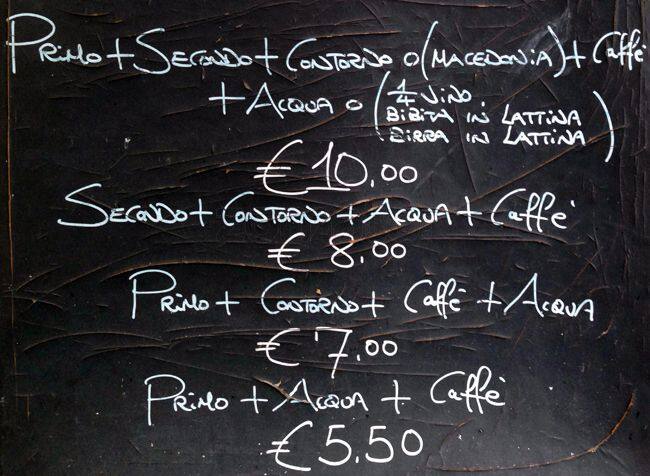 PRIMO + SECONDO + CONTORNO O (MACEDONIA) + Caffè
+ ACQUA O ( 1/4 VINO.
BIBITA IN LATTINA
BIRRA IN LATTINA )
€ 10.00
SECONDO + CONTORNO + ACQUA + Caffè
€ 8.00
PRIMO + CONTORNO + Caffè + ACQUA
€ 7.00
PRIMO + ACQUA + Caffè
€ 5.50